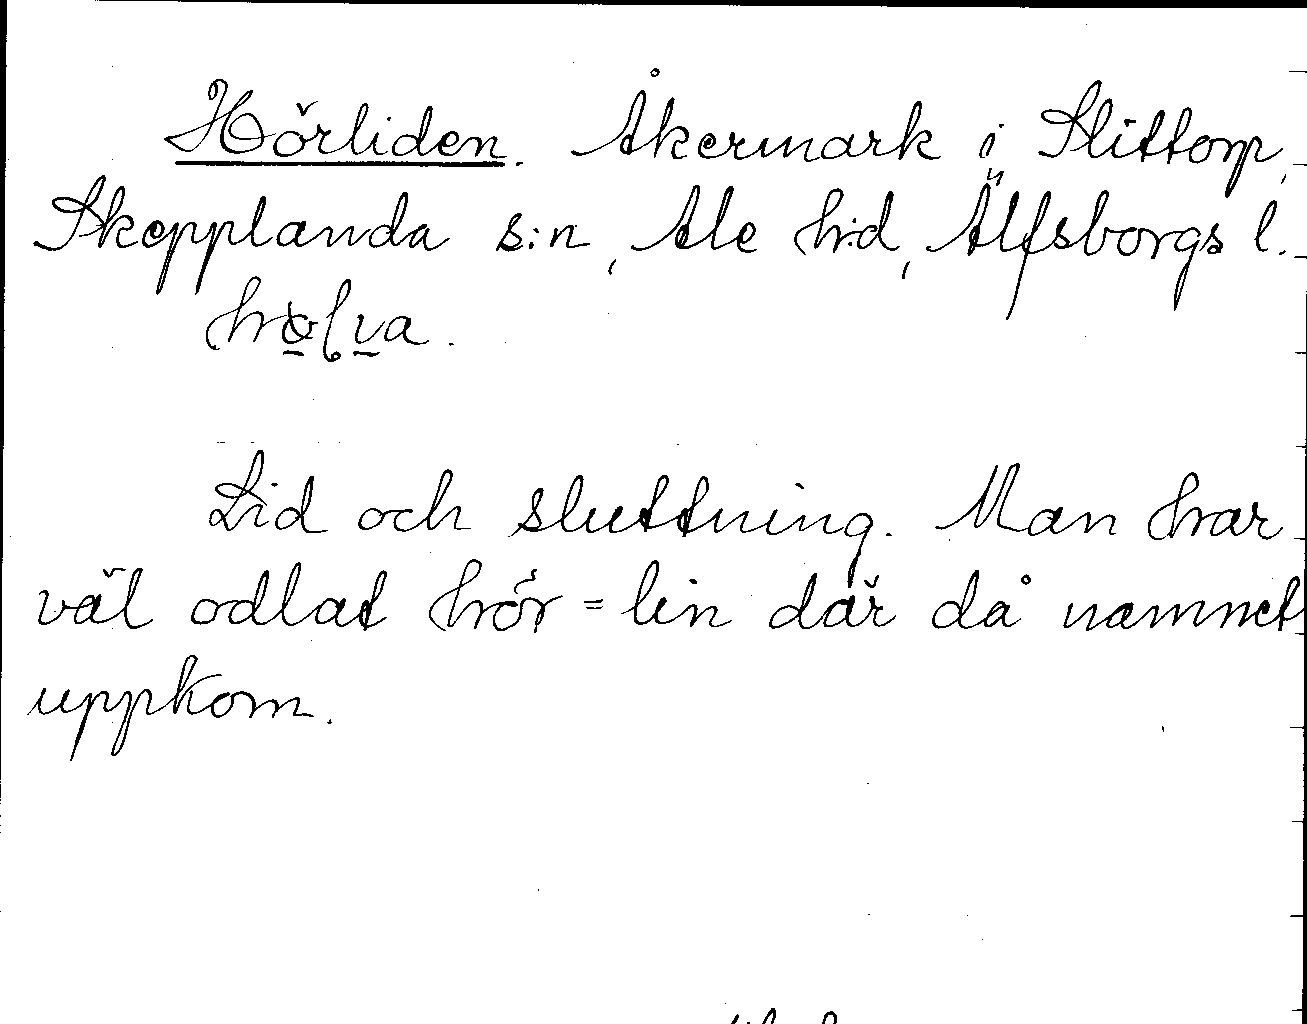 Hörliden. Åkermark i Slittorp,
Skepplanda s:n, Ale h:d, Älfsborgs l.
Lid och sluttning. Man har
väl odlat hör = lin där då namnet
uppkom.